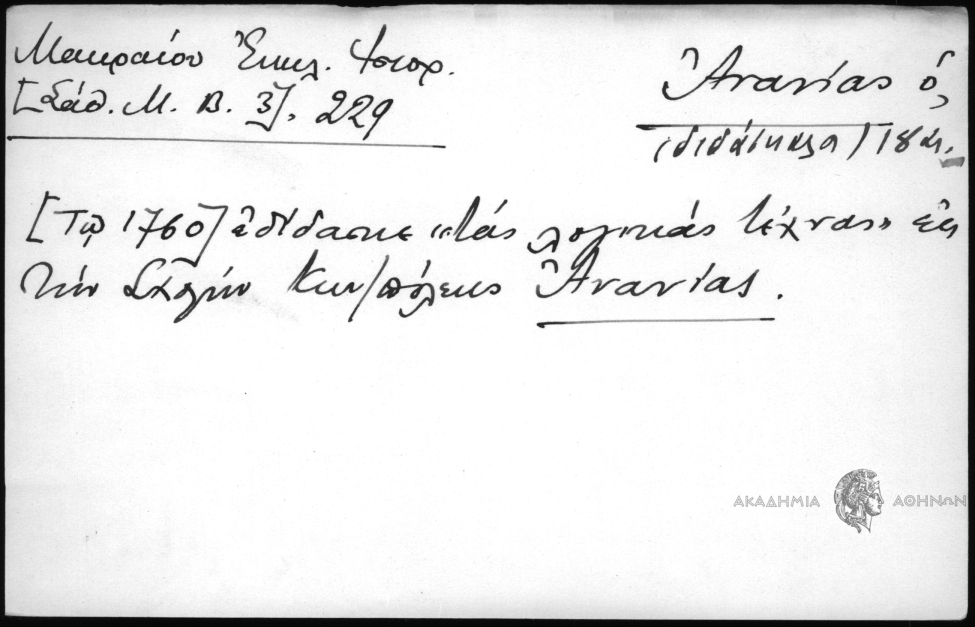 Μακραίου Ἐκκλ. Ἱστορ.
[Σάθ. Μ. Β. 3]. 229
Ἀνανίας ὁ,
(διδάσκαλο) 18 αι.
[Τῷ 1760] ἐδίδασκε «τάς λογικάς τέχνας» εἰς
τήν Σχολήν Κων/πόλεως Ἀνανίας.
ΑΚΑΔΗΜΙΑ ΑΘΗΝΩΝ